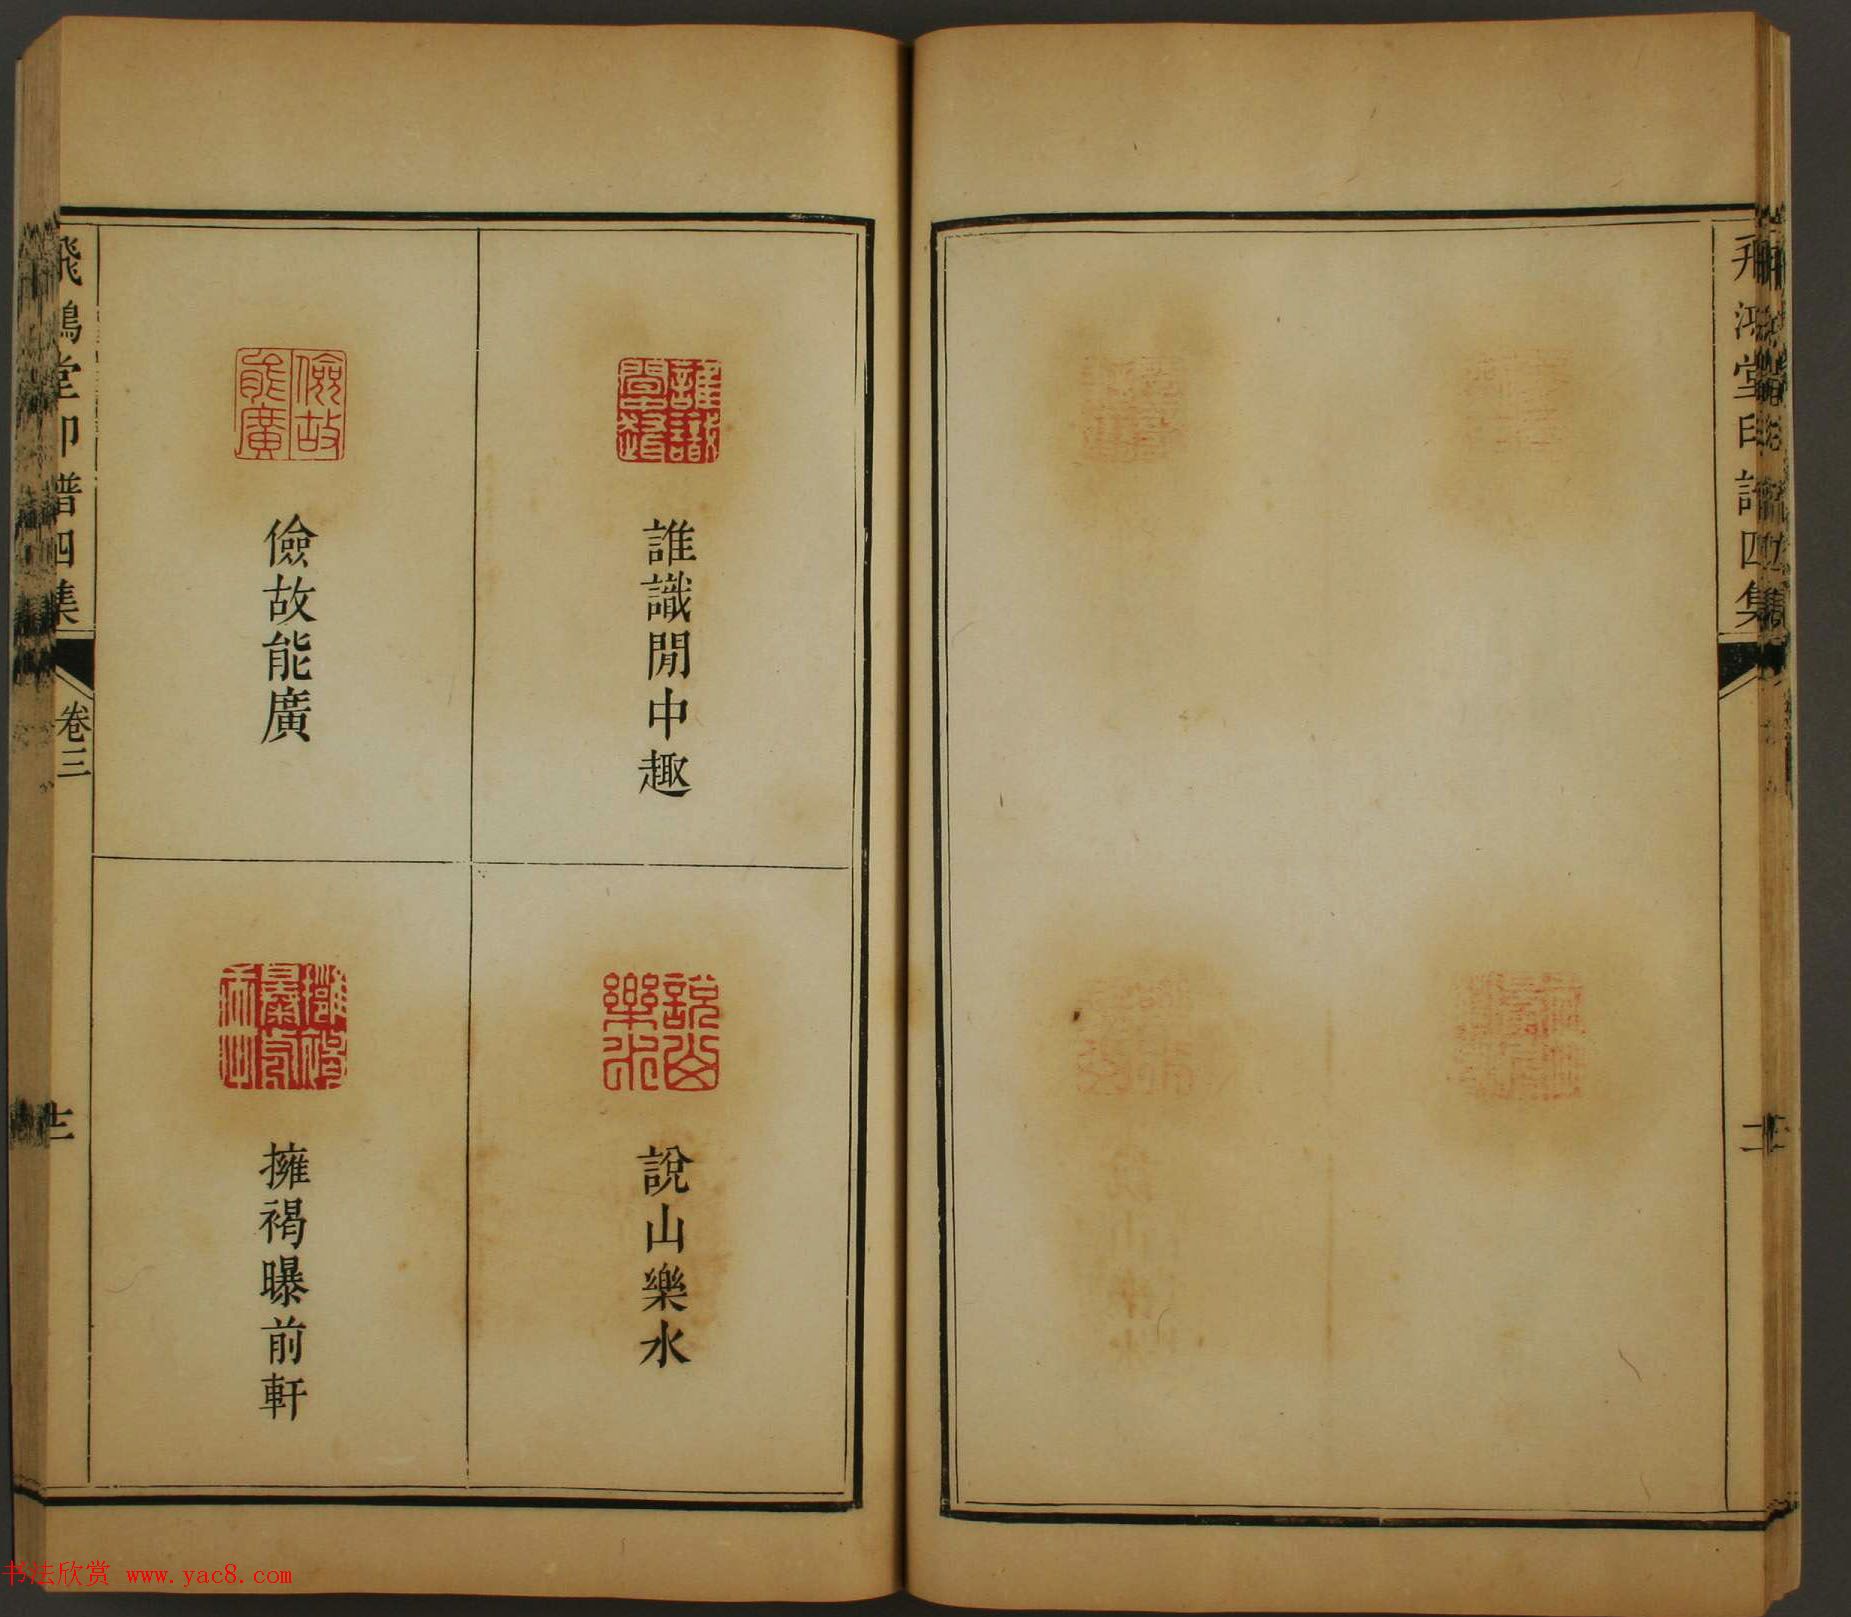 飛鴻堂印譜四集
誰識閒中趣
誰識閒中趣
說山樂水
說山樂水
儉故能廣
儉故能廣
擁褐曝前軒
擁褐曝前軒
飛鴻堂印譜四集
卷三
书法欣赏 www.yac8.com